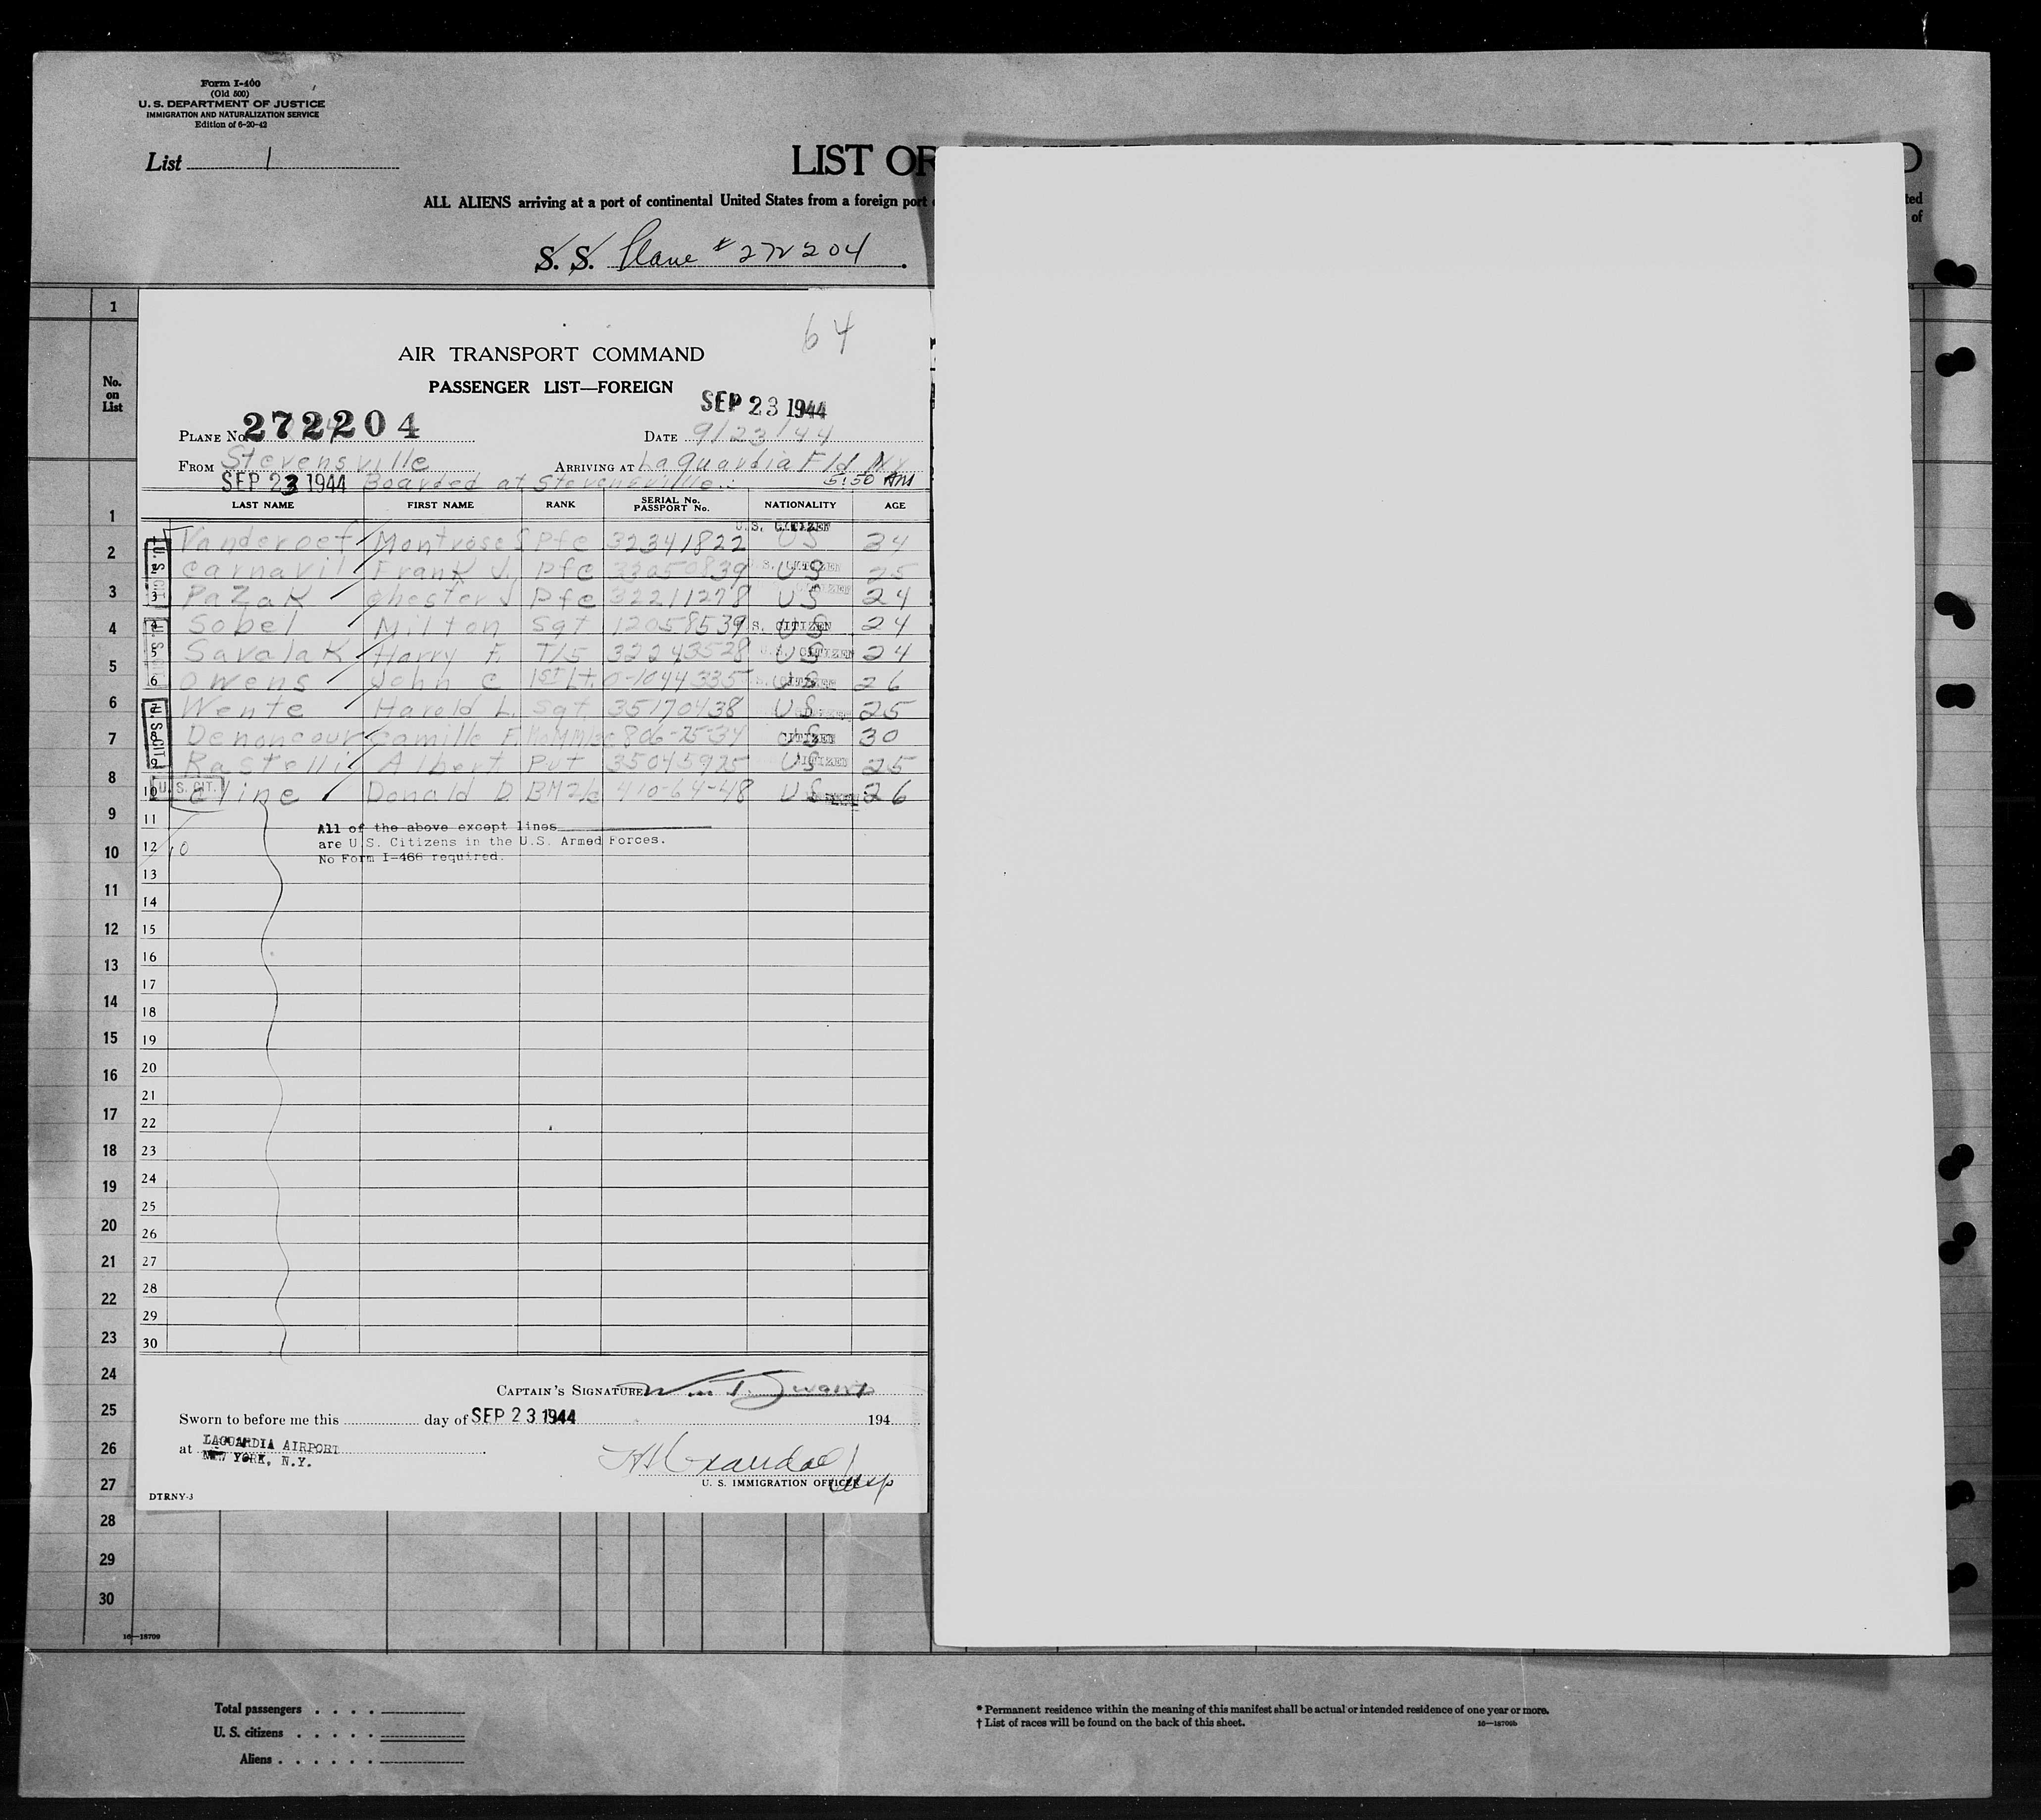 Form I-400
(Old 500)
U. S. DEPARTMENT OF JUSTICE
IMMIGRATION AND NATURALIZATION SERVICE
Edition of 6-20-42
List 1
LIST OR
ALL ALIENS arriving at a port of continental United States from a foreign port
S. S. Plane # 272204
64
AIR TRANSPORT COMMAND
PASSENGER LIST—FOREIGN
SEP 23 1944
PLANE No. 272204 DATE 9/23/44
FROM Stevensville ARRIVING AT LaGuardia Fld NY
SEP 23 1944 Boarded at Stevensville 5:50 AM
No. on List LAST NAME FIRST NAME RANK SERIAL No. PASSPORT No. NATIONALITY AGE
U.S. CITIZEN
Montrose Pfc 32341822 US 34
2 Carnavil Frank J. Pfc 33050839 US 25
3 Pazak Chester J Pfc 32211278 US 24
4 Sobel Milton Sgt 12058539 US 24
5 Savalak Harry F. T/5 32243528 US 24
6 Owens John C 1st Lt. 0-1044335 US 26
7 Wente Harold L. Sgt 35170438 US 25
8 Denoncour Camille F. 806-25-34 US 30
9 Rastelli Albert Pvt 35045925 US 25
10 Cline Donald D. BM2/c 410-64-48 US 26
11
All of the above except lines
12 10 are U.S. Citizens in the U.S. Armed Forces.
No Form I-466 required.
13
14
15
16
17
18
19
20
21
22
23
24
25
26
27
28
29
30
CAPTAIN'S SIGNATURE
Sworn to before me this day of SEP 23 1944 194
at LAGUARDIA AIRPORT
NEW YORK, N.Y.
U. S. IMMIGRATION OFFICER
DTRNY-3
16—18709
Total passengers
U. S. citizens
Aliens
* Permanent residence within the meaning of this manifest shall be actual or intended residence of one year or more.
† List of races will be found on the back of this sheet.
16—18709b